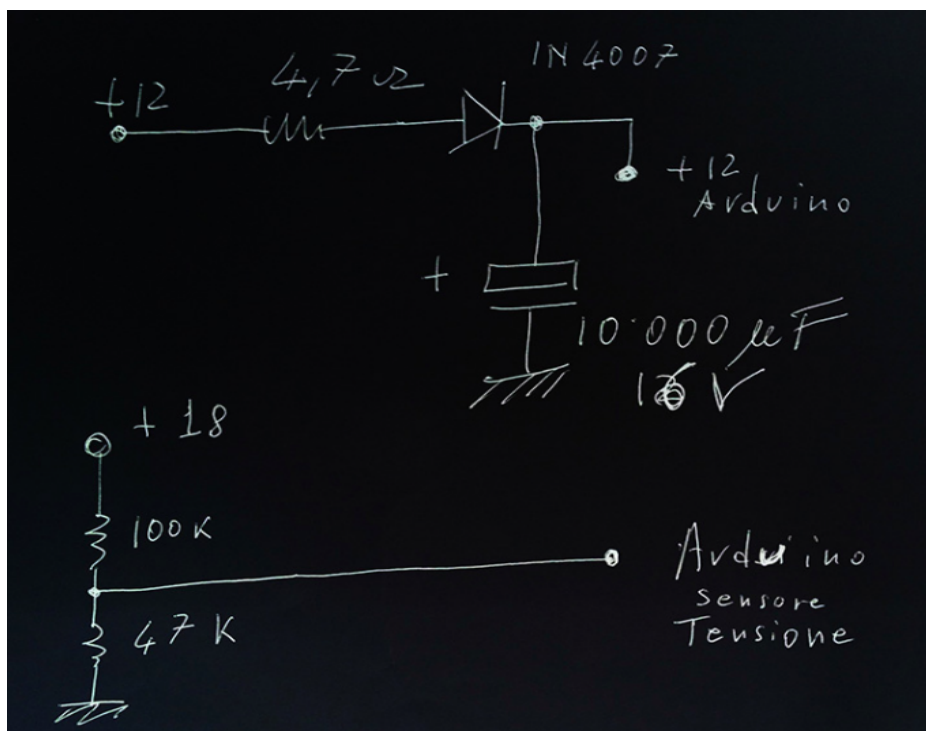 1N4007
4,7 Ω
+12
+12
Arduino
+
10.000 µF
16 V
+ 18
100K
47 K
Arduino
sensore
Tensione